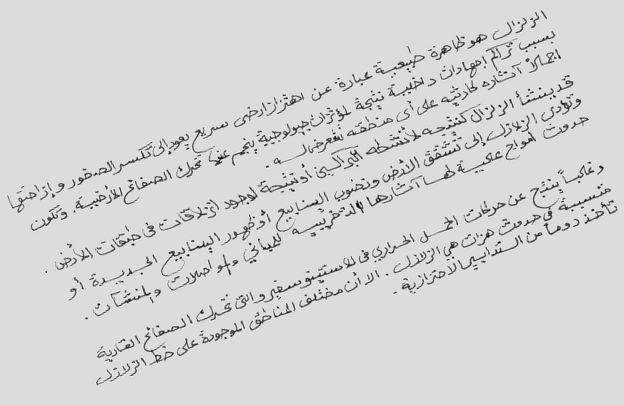 الزلزال هو ظاهرة طبيعية عبارة عن اهتزاز ارضى سريع يعود إلى تكسر الصخور وإزاحتها
بسبب تراكم إجهادات داخلية نتيجة لمؤثرات جيولوجية ينجم عنها تحرك الصفائح الأرضية. وتكون
اجمالاً آثاره كارثيه على أى منطقه تتعرض له.
قد ينشأ الزلزال كنتيجه لأنشطه البراكين أو نتيجة لوجود انزلاقات فى طبقات الأرض.
وتؤدى الزلازل إلى تشقق الأرض ونضوب الينابيع أو ظهور الينابيع الجديدة أو
حدوث أمواج عالية لها آثارها التخريبيه للمباني والمواصلات والمنشآت.
وغالباً ينتج عن حركات الحمل الحرارى فى الأستينوسفير والتى تحرك الصفائح القارية
متسببة فى حدوث هزات هي الزلازل. الا أن مختلف المناطق الموجودة على خط الزلازل
تأخذ دوماً من التدابير الاحترازية.